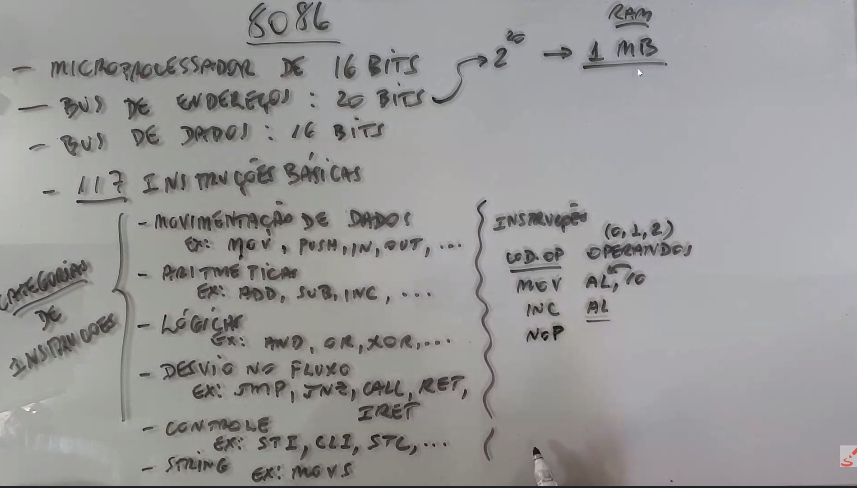 8086
- MICROPROCESSADOR DE 16 BITS
- BUS DE ENDEREÇOS : 20 BITS → 2^20 → 1 MB
RAM
- BUS DE DADOS : 16 BITS
- 117 INSTRUÇÕES BÁSICAS
CATEGORIAS
DE
INSTRUÇÕES
- MOVIMENTAÇÃO DE DADOS
EX: MOV, PUSH, IN, OUT, ...
- ARITMETICAS
EX: ADD, SUB, INC, ...
- LÓGICAS
EX: AND, OR, XOR, ...
- DESVIO NO FLUXO
EX: JMP, JNZ, CALL, RET,
IRET
- CONTROLE
EX: STI, CLI, STC, ...
- STRING
EX: MOVS
INSTRUÇÃO
(0, 1, 2)
COD.OP OPERANDOS
MOV AL, 10
INC AL
NOP